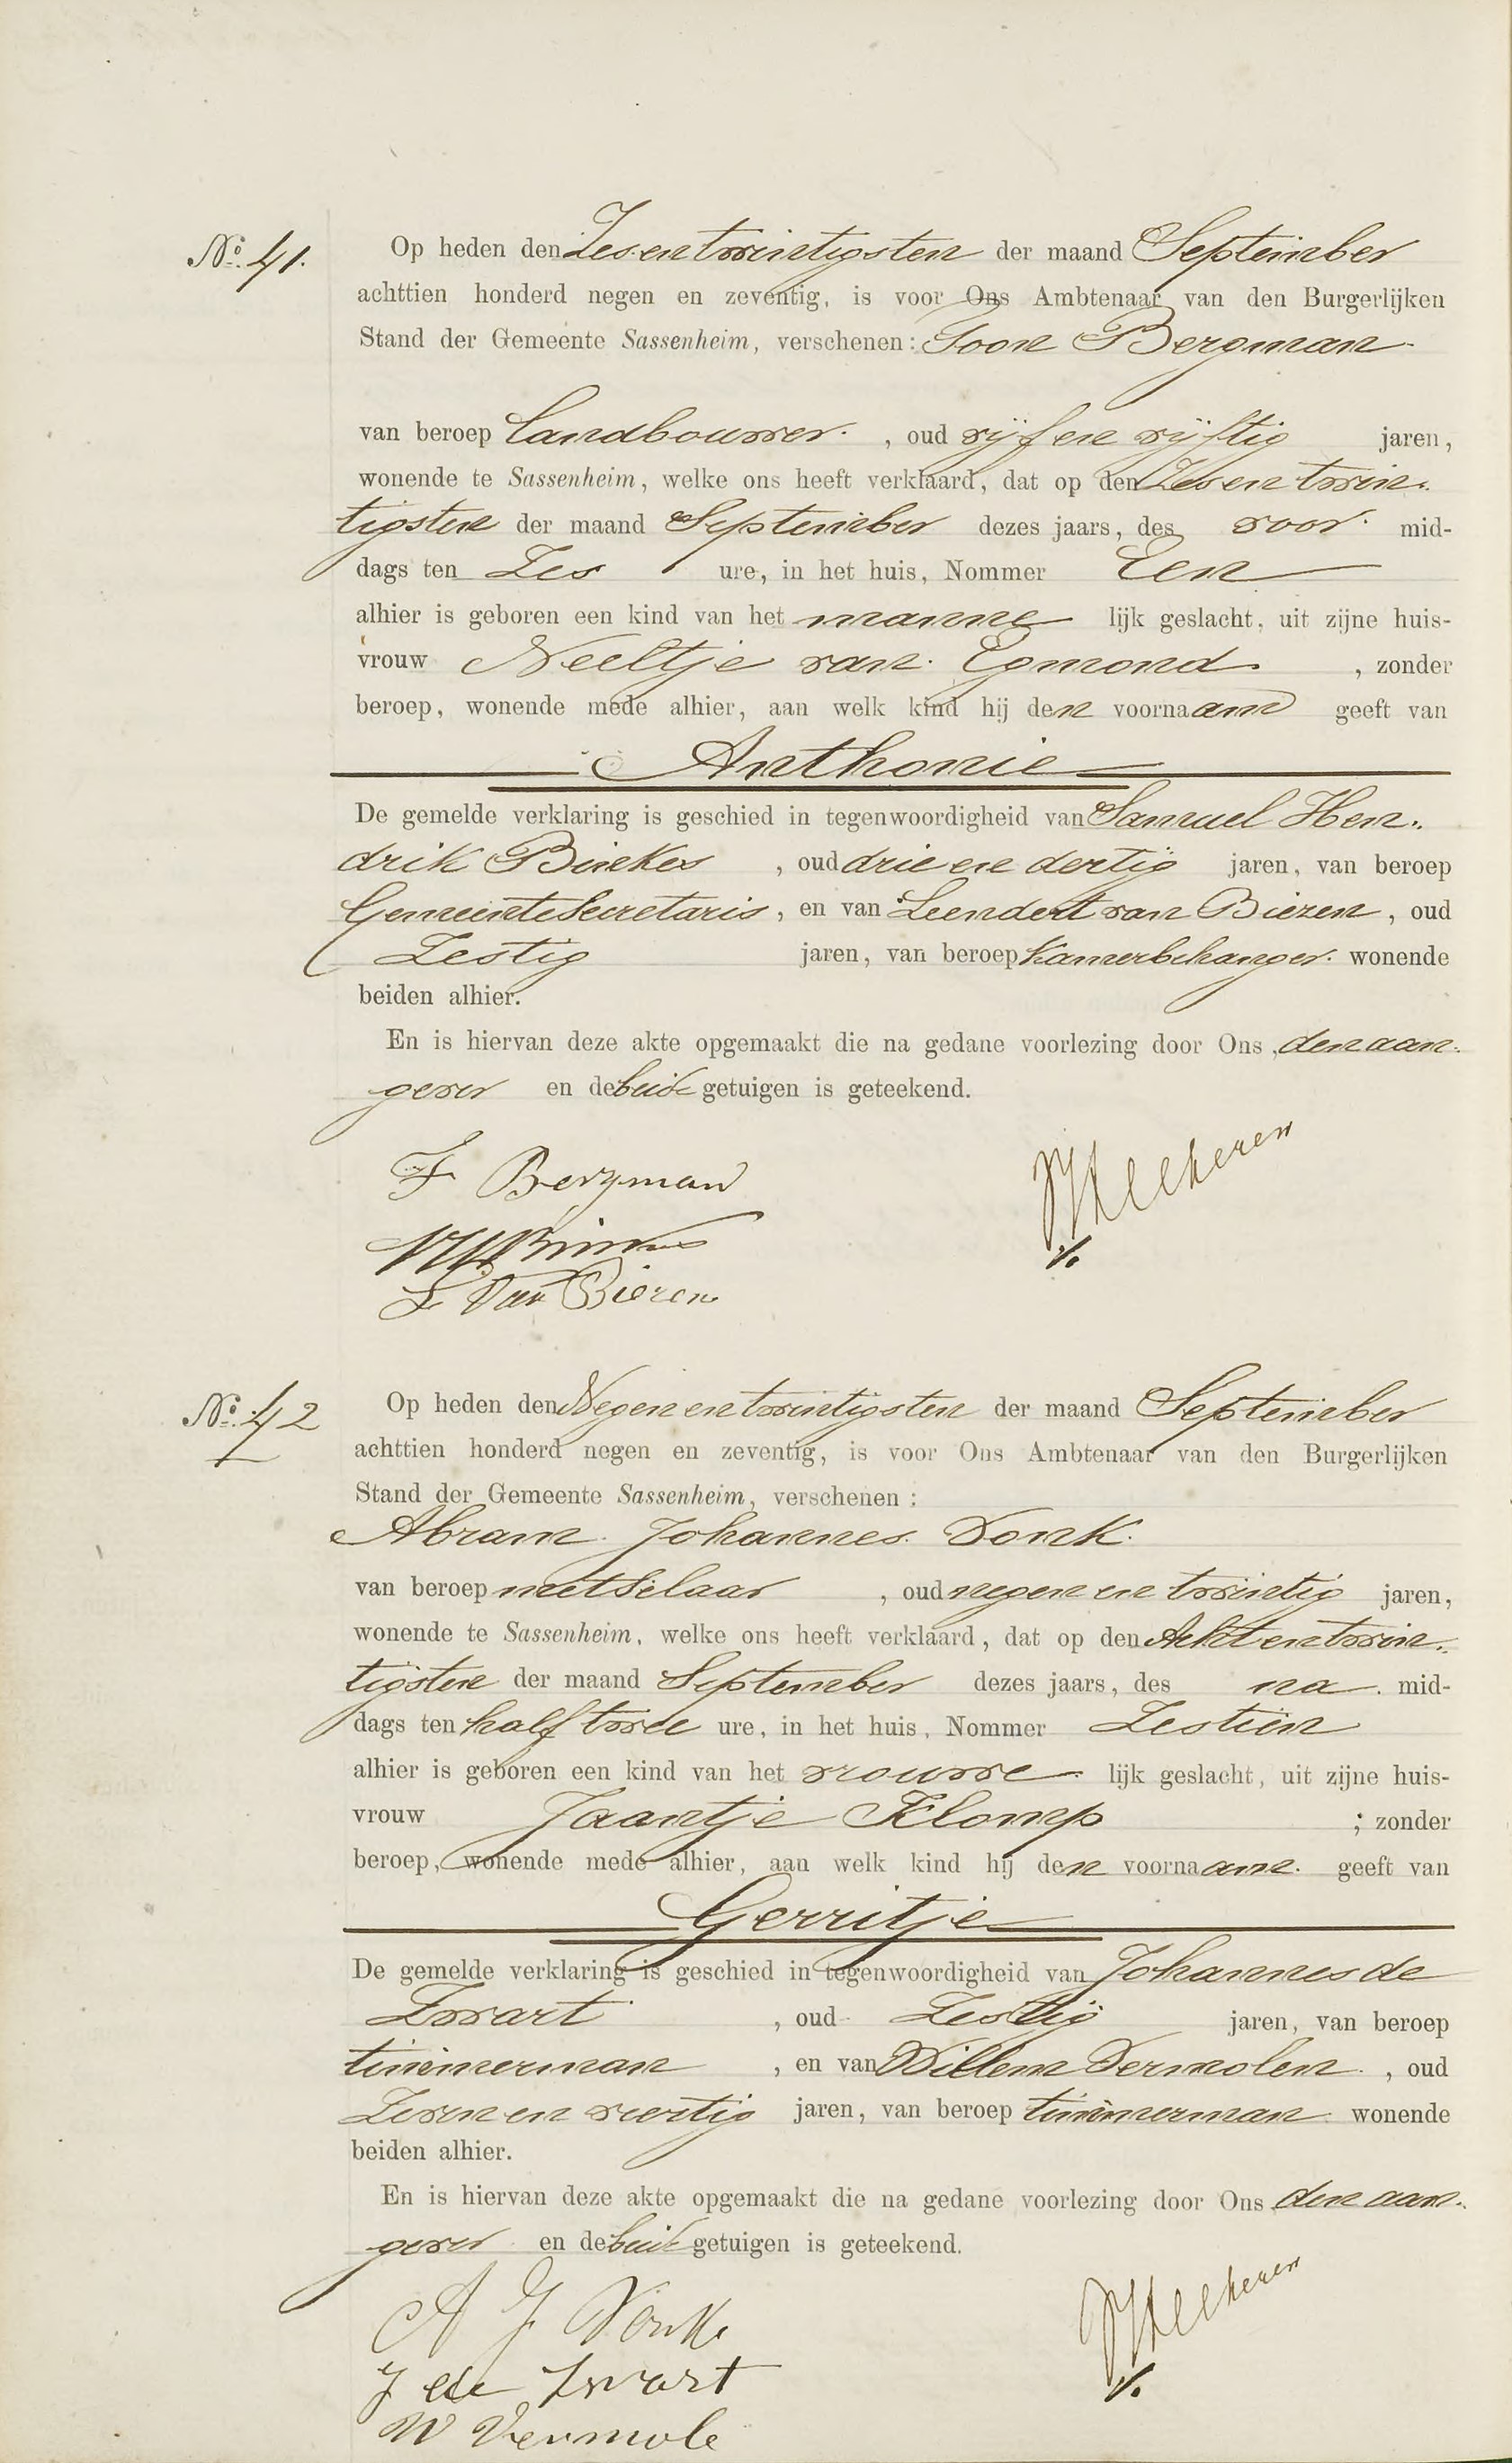 No. 41.
Op heden den Zesentwintigsten der maand September
achttien honderd negen en zeventig, is voor Ons Ambtenaar van den Burgerlijken
Stand der Gemeente Sassenheim, verschenen: Toon Bergman
van beroep landbouwer. , oud vijf en vijftig jaren,
wonende te Sassenheim, welke ons heeft verklaard, dat op den Zes en twin-
tigsten der maand September dezes jaars, des voor mid-
dags ten Zes ure, in het huis, Nommer Een
alhier is geboren een kind van het manne lijk geslacht, uit zijne huis-
vrouw Neeltje van Egmond , zonder
beroep, wonende mede alhier, aan welk kind hij den voornaam geeft van
Anthonie
De gemelde verklaring is geschied in tegenwoordigheid van Samuel Hen-
drik Binkes , oud drie en dertig jaren, van beroep
Gemeente Secretaris , en van Leendert van Biezen , oud
Zestig jaren, van beroep Kamerbehanger. wonende
beiden alhier.
En is hiervan deze akte opgemaakt die na gedane voorlezing door Ons , den aan-
gever en de beide getuigen is geteekend.
T Bergman
L Van Biezen
No. 42
Op heden den Negen en twintigsten der maand September
achttien honderd negen en zeventig, is voor Ons Ambtenaar van den Burgerlijken
Stand der Gemeente Sassenheim, verschenen :
Abram Johannes Vonk.
van beroep metselaar , oud negen en twintig jaren,
wonende te Sassenheim, welke ons heeft verklaard, dat op den Acht en twin-
tigsten der maand September dezes jaars, des na mid-
dags ten half twee ure, in het huis, Nommer Zestien
alhier is geboren een kind van het vrouwe lijk geslacht, uit zijne huis-
vrouw Jaantje Klomp ; zonder
beroep, wonende mede alhier, aan welk kind hij den voornaam geeft van
Gerritje
De gemelde verklaring is geschied in tegenwoordigheid van Johannes de
Zwart , oud Zestig jaren, van beroep
timmerman , en van Willem Vermolen , oud
Zeven en veertig jaren, van beroep timmerman wonende
beiden alhier.
En is hiervan deze akte opgemaakt die na gedane voorlezing door Ons den aan-
gever en de beide getuigen is geteekend.
A J Vonk
J de Zwart
W Vermole